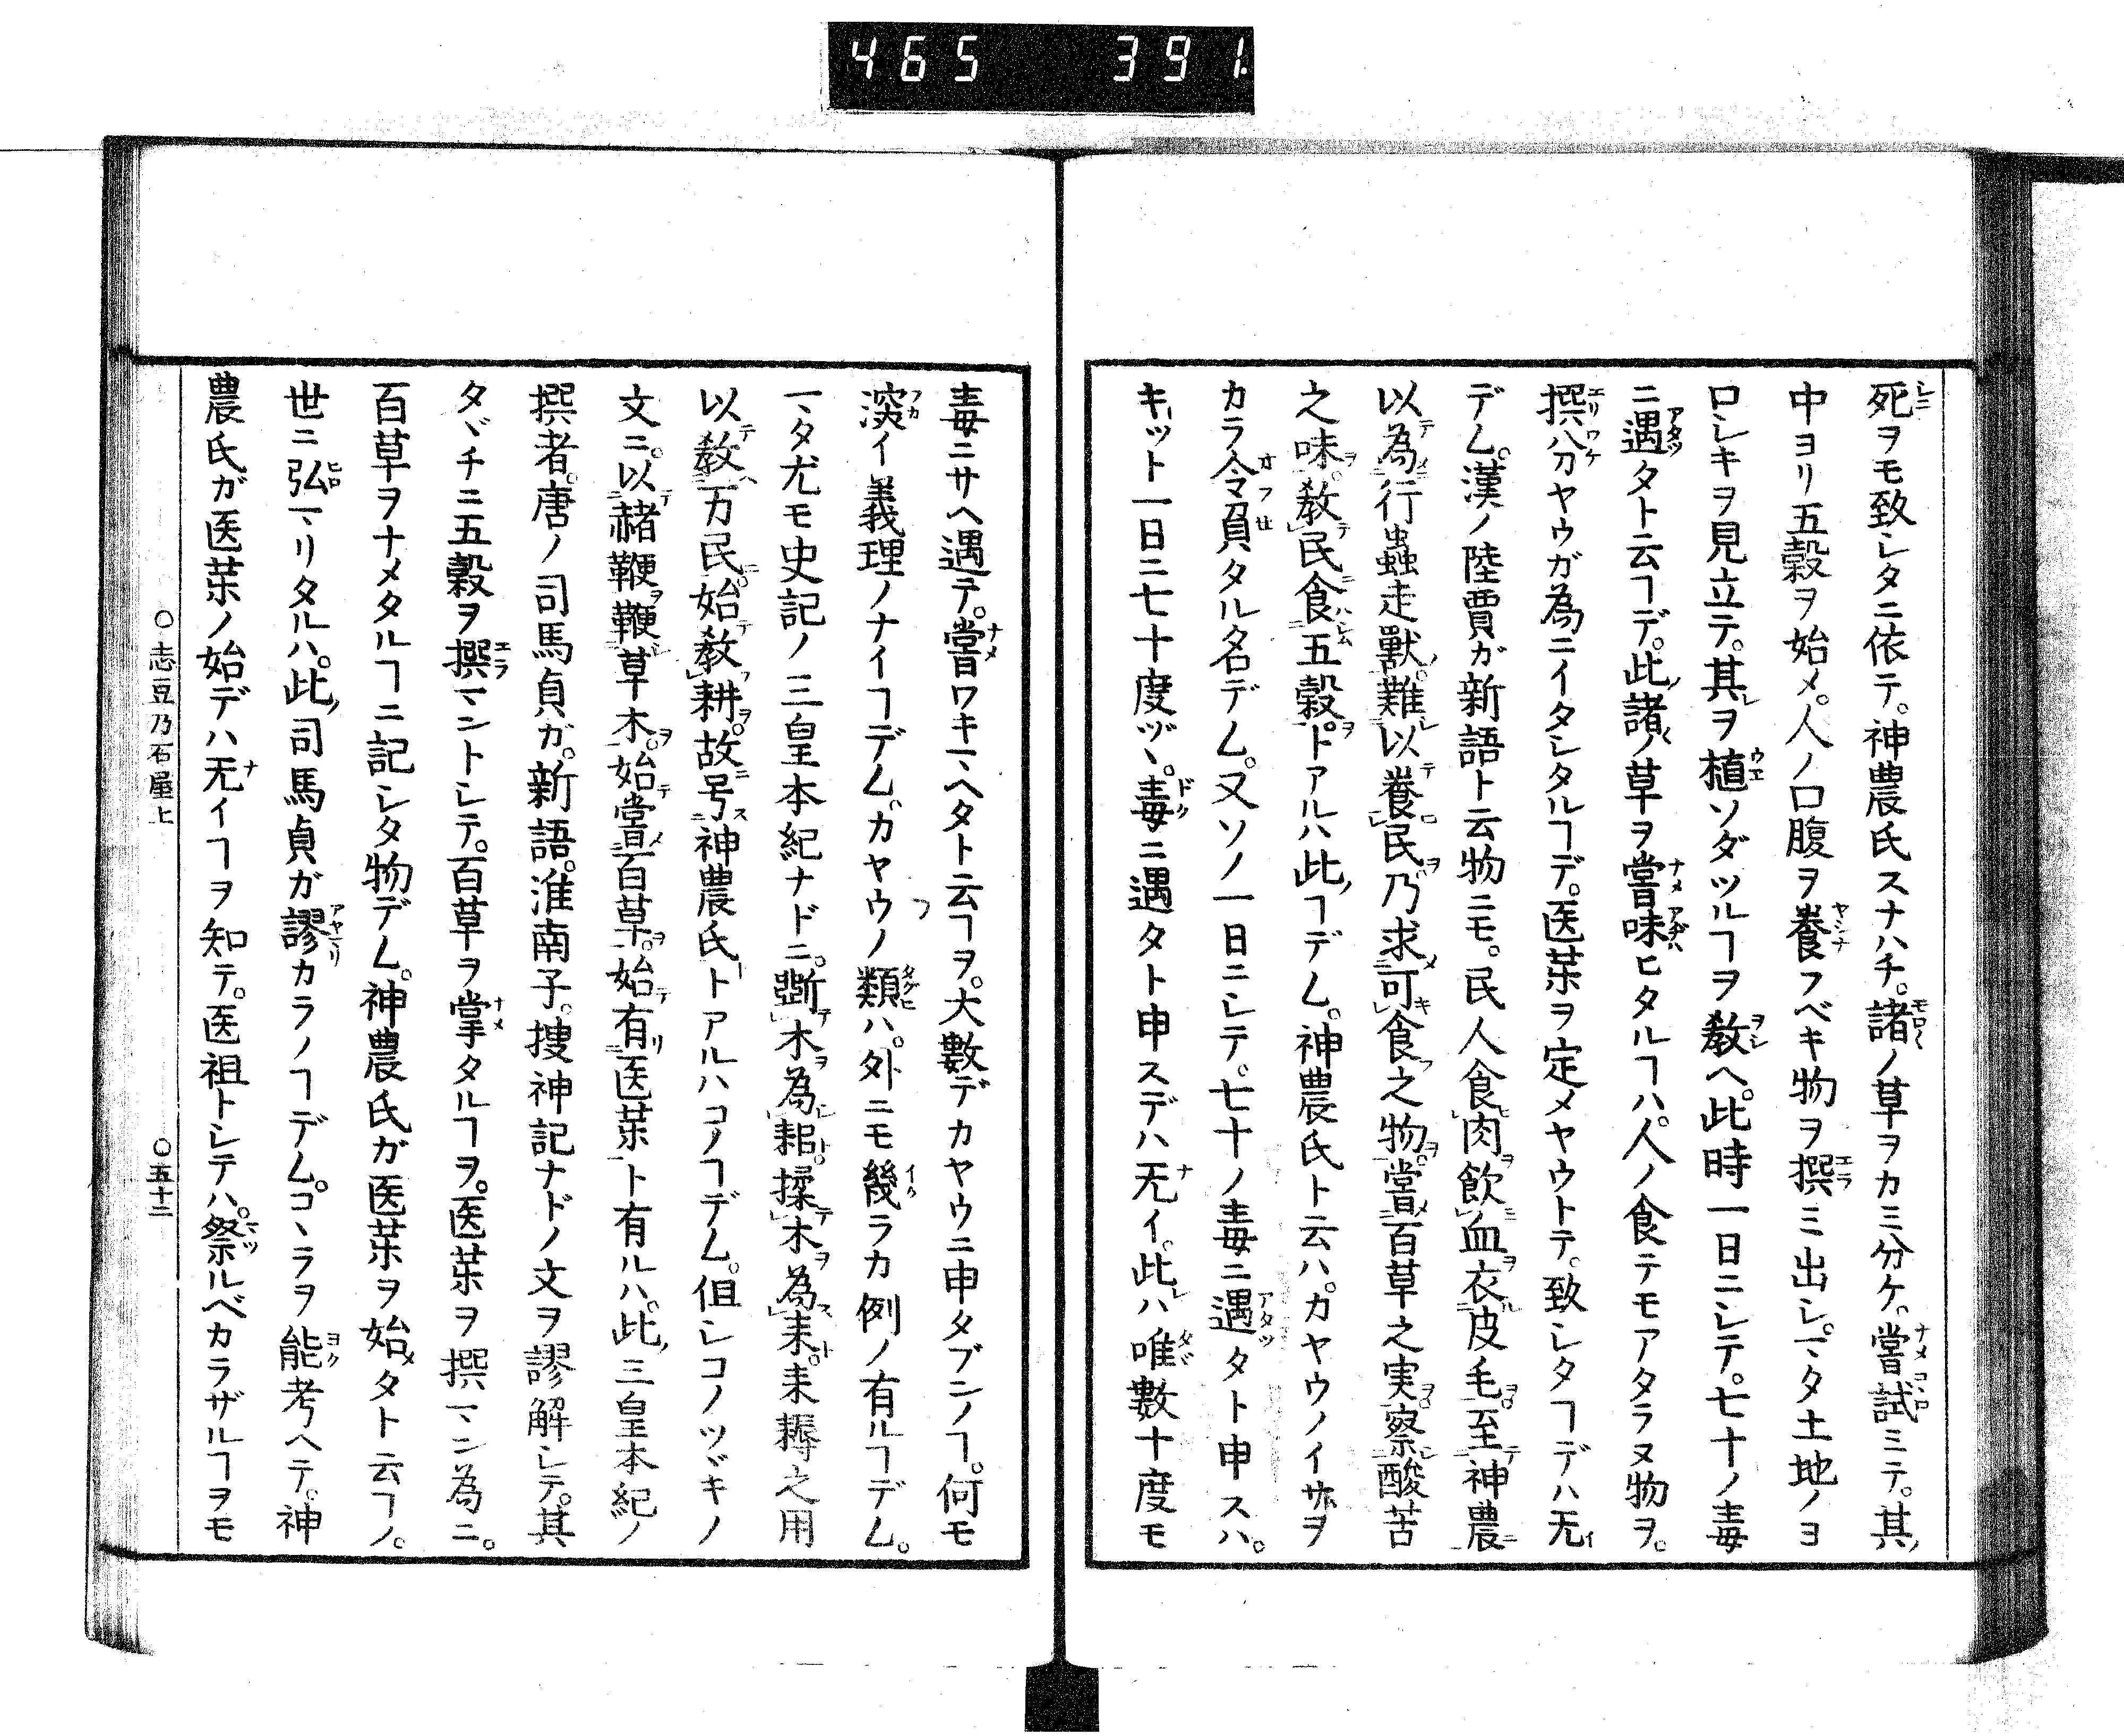 465 391.
死ヲモ致シタニ依テ。神農氏スナハチ。諸ノ草ヲカミ分ケ。嘗試ミテ。其ノ
中ヨリ五穀ヲ始メ。人ノ口腹ヲ養フベキ物ヲ撰ミ出シ。マヽタ土地ノヨ
ロシキヲ見立テ。其レヲ植ソダツルヿヲ教ヘ。此時一日ニシテ。七十ノ毒
ニ遇タト云ヿデ。此ノ諸ノ草ヲ嘗味ヒタルヿハ。人ノ食テモアタラヌ物ヲ。
撰分ヤウガ為ニイタシタルヿデ。医薬ヲ定メヤウトテ。致シタヿデハ无イ
デム。漢ノ陸賈ガ新語ト云物ニモ。民人食肉飲血衣皮毛。至神農
以為行蟲走獸。難以養民。乃求可食之物。嘗百草之実。察酸苦
之味。教民食五穀。トアルハ此ノヿデム。神農氏ト云ハ。カヤウノイサヲ
カラ令負タル名デム。又ソノ一日ニシテ。七十ノ毒ニ遇タト申スハ。
キット一日ニ七十度ヅヽ。毒ニ遇タト申スデハ无イ。此レハ唯數十度モ
毒ニサヘ遇テ。嘗ワキマヘタト云ヿヲ。大數デカヤウニ申タブンノヿ。何モ
深イ義理ノナイヿデム。カヤウノ類ハ。外ニモ幾ラカ例ノ有ルヿデム。
マタ尤モ史記ノ三皇本紀ナドニ。斲木為耜。揉木為耒。耒耨之用
以教万民。始教耕。故号神農氏トアルハコノヿデム。但シコノツヾキノ
文ニ。以赭鞭鞭草木。始嘗百草。始有医薬ト有ルハ。此ノ三皇本紀ノ
撰者。唐ノ司馬貞ガ。新語。淮南子。捜神記ナドノ文ヲ謬解シテ。其
タヾチニ五穀ヲ撰マントシテ。百草ヲ掌タルヿヲ。医薬ヲ撰マン為ニ。
百草ヲナメタルヿニ記シタ物デム。神農氏ガ医薬ヲ始メタト云ヿノ。
世ニ弘マリタルハ。此ノ司馬貞ガ謬カラノヿデム。コヽラヲ能考ヘテ。神
農氏ガ医薬ノ始デハ无イヿヲ知テ。医祖トシテハ。祭ルベカラザルヿヲモ
〇志豆乃石屋上 〇五十二